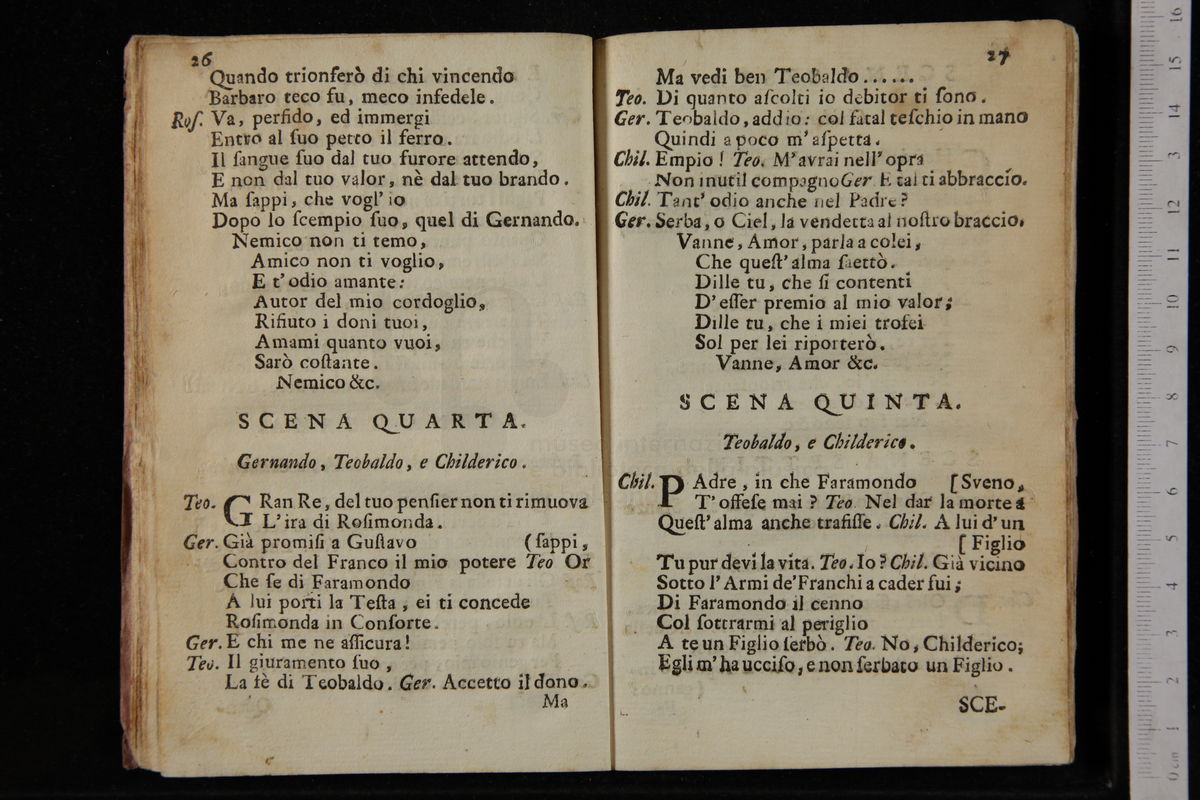 26
Quando trionferò di chi vincendo
Barbaro teco fu, meco infedele.
Roſ. Va, perfido, ed immergi
Entro al ſuo petto il ferro.
Il ſangue ſuo dal tuo furore attendo,
E non dal tuo valor, nè dal tuo brando.
Ma ſappi, che vogl' io
Dopo lo ſcempio ſuo, quel di Gernando.
Nemico non ti temo,
Amico non ti voglio,
E t'odio amante:
Autor del mio cordoglio,
Rifiuto i doni tuoi,
Amami quanto vuoi,
Sarò coſtante.
Nemico &c.
SCENA QUARTA.
Gernando, Teobaldo, e Childerico.
Teo. GRan Re, del tuo penſier non ti rimuova
L'ira di Roſimonda.
Ger. Già promiſi a Guſtavo (ſappi,
Contro del Franco il mio potere Teo Or
Che ſe di Faramondo
A lui porti la Teſta, ei ti concede
Roſimonda in Conſorte.
Ger. E chi me ne aſſicura!
Teo. Il giuramento ſuo,
La fè di Teobaldo. Ger. Accetto il dono.
Ma
27
Ma vedi ben Teobaldo......
Teo. Di quanto aſcolti io debitor ti ſono.
Ger. Teobaldo, addio: col fatal teſchio in mano
Quindi a poco m'aſpetta.
Chil. Empio! Teo. M'avrai nell'opra
Non inutil compagno Ger E tal ti abbraccio.
Chil. Tant' odio anche nel Padre?
Ger. Serba, o Ciel, la vendetta al noſtro braccio.
Vanne, Amor, parla a colei,
Che queſt'alma ſaettò.
Dille tu, che ſi contenti
D'eſſer premio al mio valor;
Dille tu, che i miei trofei
Sol per lei riporterò.
Vanne, Amor &c.
SCENA QUINTA.
Teobaldo, e Childerico.
Chil. PAdre, in che Faramondo [Sveno,
T'offeſe mai? Teo Nel dar la morte a
Queſt'alma anche trafiſſe. Chil. A lui d'un
[Figlio
Tu pur devi la vita. Teo. Io? Chil. Già vicino
Sotto l'Armi de'Franchi a cader fui;
Di Faramondo il cenno
Col ſottrarmi al periglio
A te un Figlio ſerbò. Teo. No, Childerico;
Egli m'ha ucciſo, e non ſerbato un Figlio.
SCE-